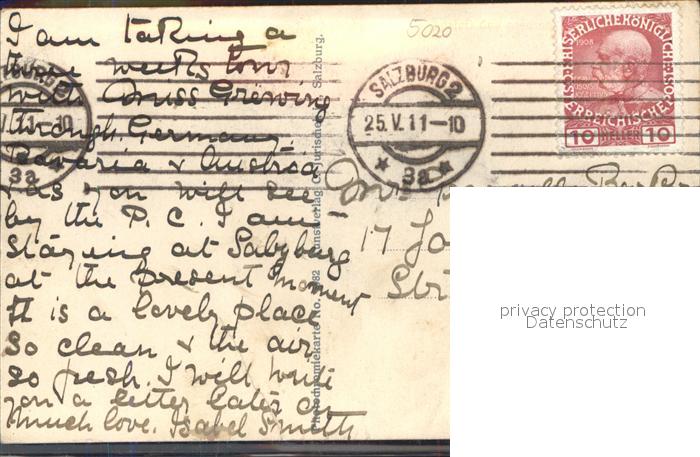 I am taking a
three weeks tour
with Miss Grewing
through Germany
Bavaria & Austria
as you will see
by the P. C. I am
staying at Salzburg
at the present moment
It is a lovely place
so clean & the air
so fresh. I will write
you a letter later on
much love. Isabel Smith
5020
SALZBURG 2
25.V.11-10
* 3a *
11-10
3a
KAISERLICHE KÖNIGLICHE
1908
ÖSTERREICHISCHE
10 HELLER 10
17
Photochromiekarte No. Kunstverlag Jurischek, Salzburg.
privacy protection
Datenschutz